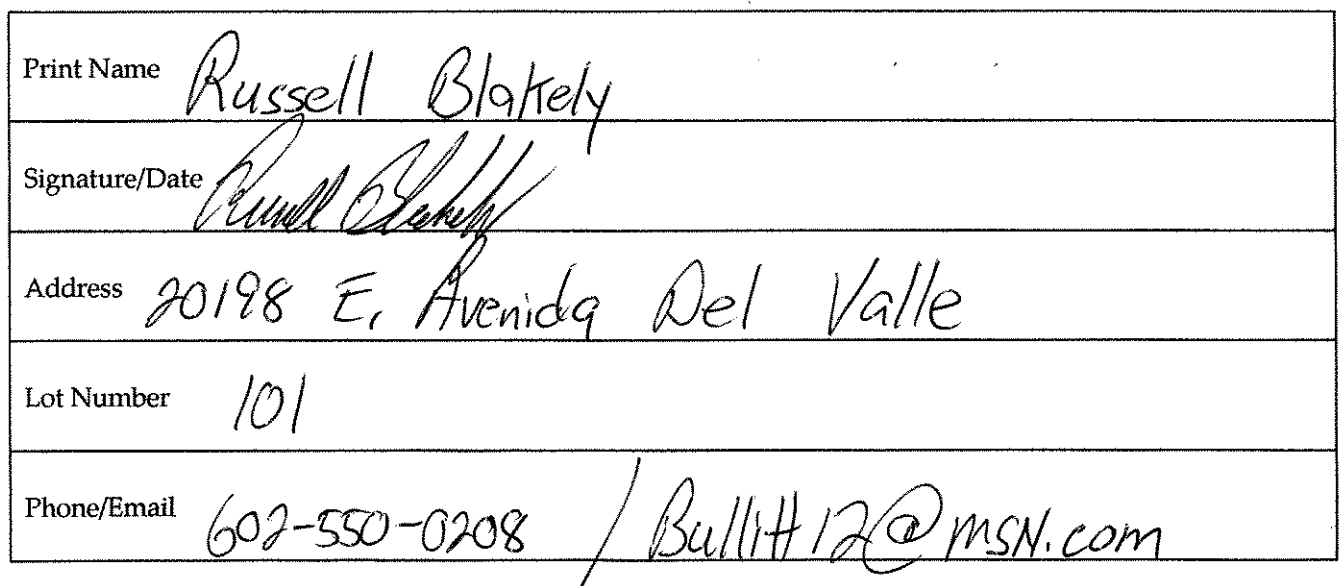 Print Name Russell Blakely
Signature/Date Russell Blakely
Address 20198 E. Avenida Del Valle
Lot Number 101
Phone/Email 602-550-0208 / Bullitt12@msn.com